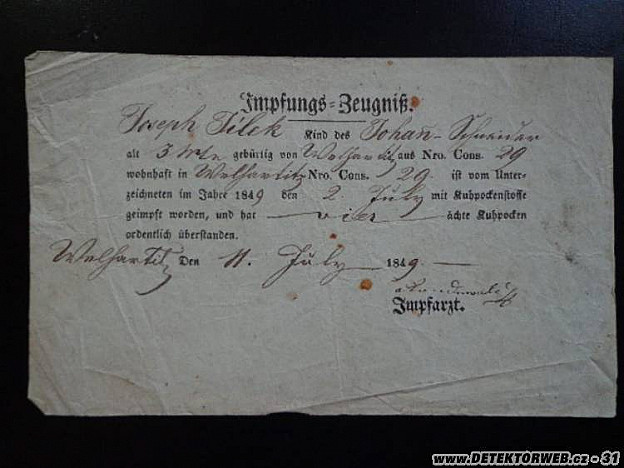 Impfungs-Zeugniß.
Joseph Filek Kind des Johan Schneider
alt 3 Mte gebürtig von Welhartitz aus Nro. Cons. 29
wohnhaft in Welhartitz Nro. Cons. 29 ist vom Unter-
zeichneten im Jahre 1849 den 2. July mit Kuhpockenstoffe
geimpft worden, und hat — vier — ächte Kuhpocken
ordentlich überstanden.
Welhartitz Den 11. July 1849. —
Impfarzt.
www.DETEKTORWEB.cz - 31